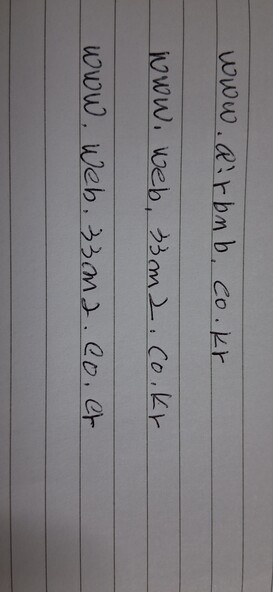 www.airbnb.co.kr
www.web.33m2.co.kr
www.web.33m2.co.cr